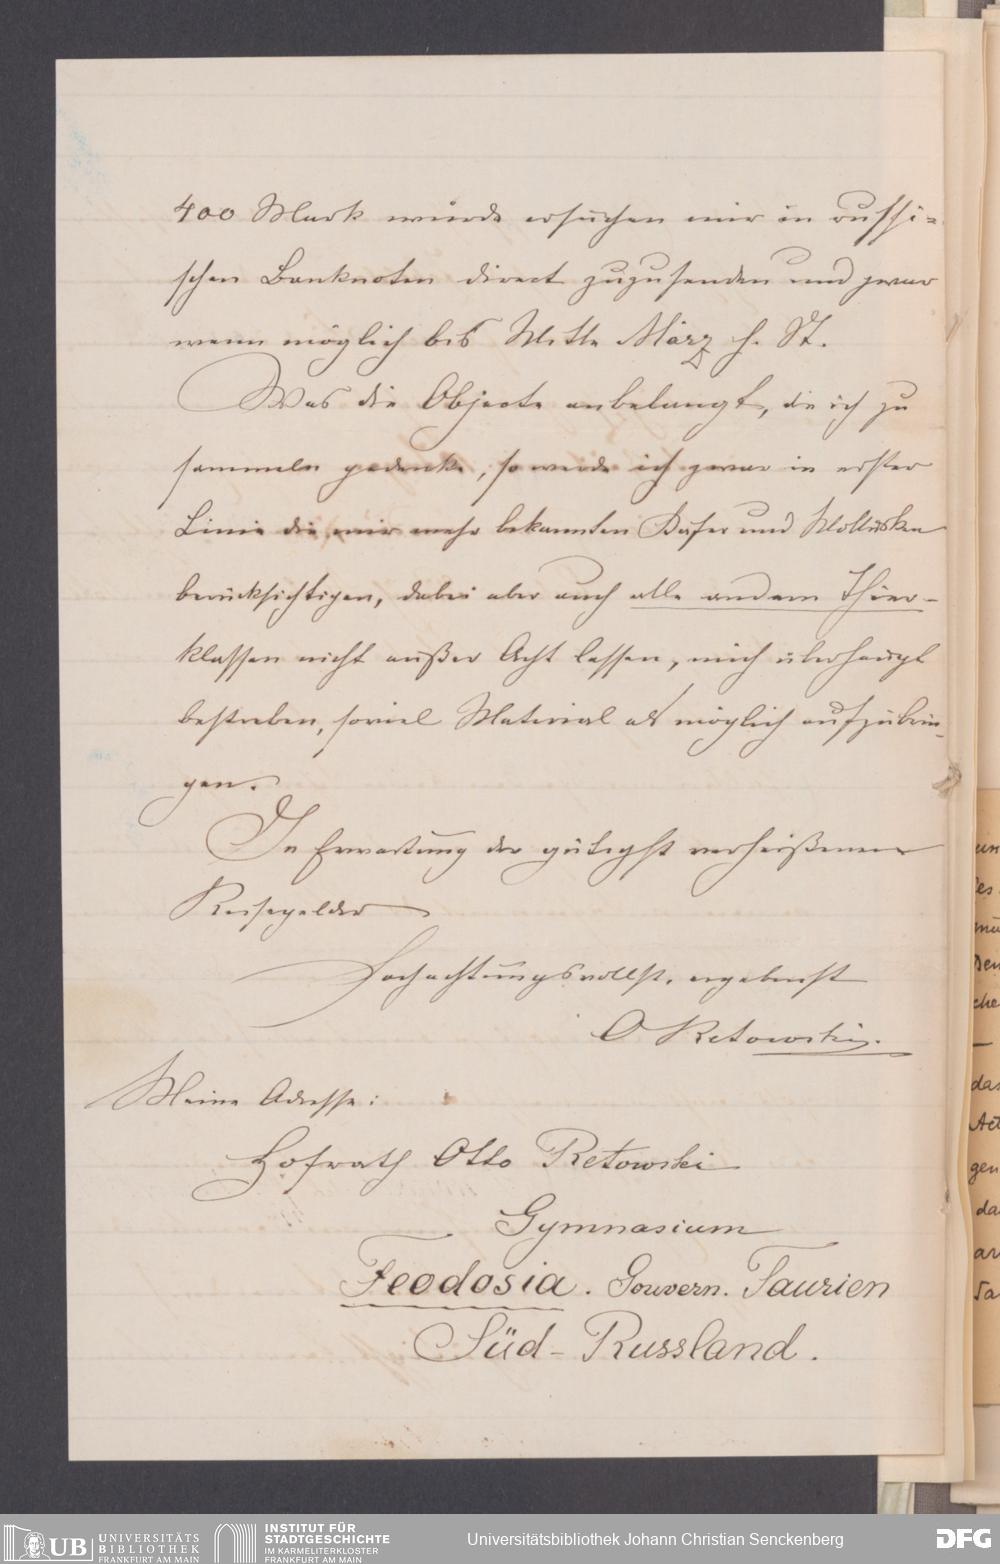 400 Mark würde ersuchen mir in russi=
schen Banknoten direct zuzusenden und zwar
wenn möglich bis Mitte März h. St.
Was die Objecte anbelangt, die ich zu
sammeln gedenke, so werde ich zwar in erster
Linie die mir mehr bekannten Käfer und Mollusken
berücksichtigen, dabei aber auch alle andern Thier-
klassen nicht außer Acht lassen, mich überhaupt
bestreben, soviel Material als möglich aufzubrin-
gen.
In Erwartung der gütigst verheißenen
Reisegelder
Hochachtungsvollst. ergebenst
O Retowski.
Meine Adresse:
Hofrath Otto Retowski
Gymnasium
Feodosia. Gouvern. Taurien
Süd-Russland.
UB UNIVERSITÄTS
BIBLIOTHEK
FRANKFURT AM MAIN
INSTITUT FÜR
STADTGESCHICHTE
IM KARMELITERKLOSTER
FRANKFURT AM MAIN
Universitätsbibliothek Johann Christian Senckenberg
DFG